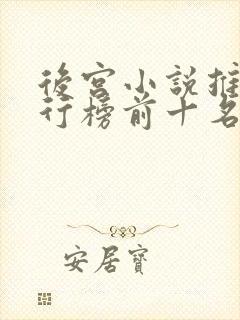 後宮小說推
行榜前十名
安居寶